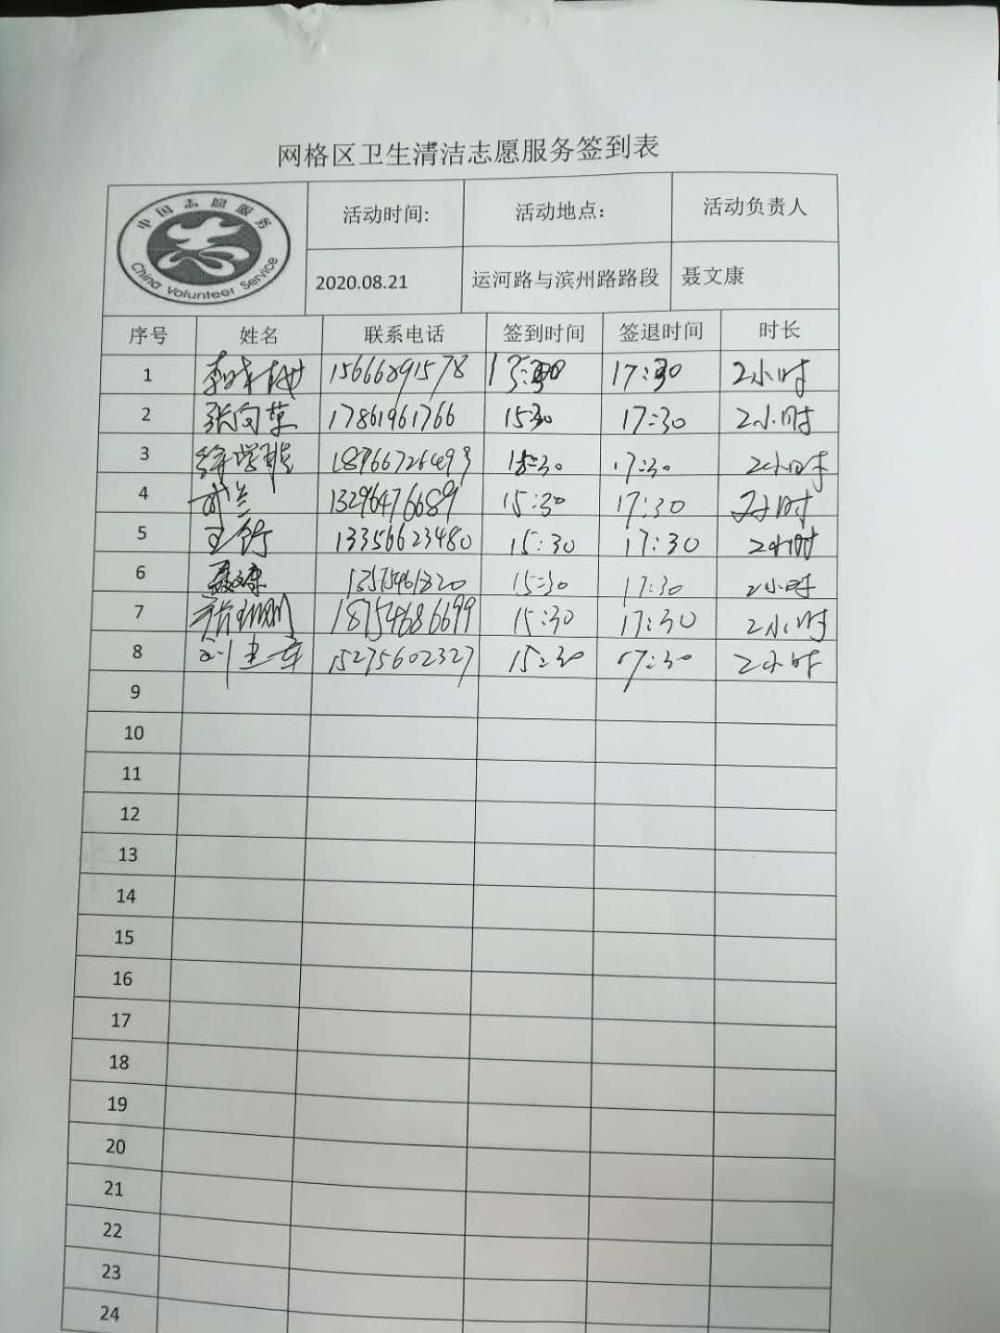 网格区卫生清洁志愿服务签到表
中国志愿服务
China Volunteer Service
活动时间: 活动地点: 活动负责人
2020.08.21 运河路与滨州路路段 聂文康
序号 姓名 联系电话 签到时间 签退时间 时长
1 15666891578 15:30 17:30 2小时
2 张向草 17861961766 15:30 17:30 2小时
3 18766726493 15:30 17:30 2小时
4 13296476689 15:30 17:30 2小时
5 13356623480 15:30 17:30 2小时
6 聂文康 15:30 17:30 2小时
7 18754686699 15:30 17:30 2小时
8 15275602327 15:30 17:30 2小时
9
10
11
12
13
14
15
16
17
18
19
20
21
22
23
24